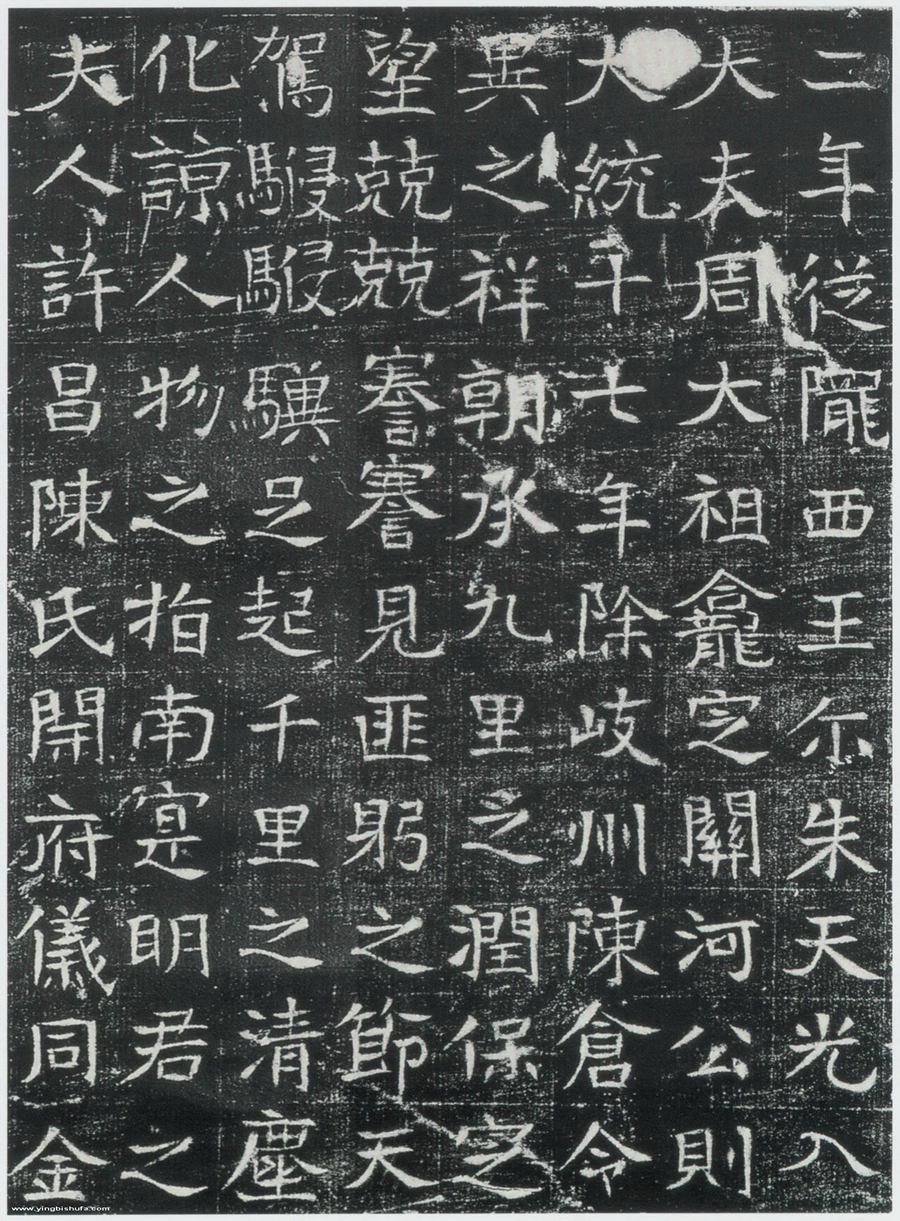 二年従隴西王尒朱天光入
大夫周大祖龕定關河公則
大統十七年除岐州陳倉令
異之祥朝承九里之潤保定
望兢兢謇謇見匪躬之節天
駕駸駸驥足起千里之清塵
化諒人物之指南寔明君之
夫人許昌陳氏開府儀同金
www.yingbishufa.com